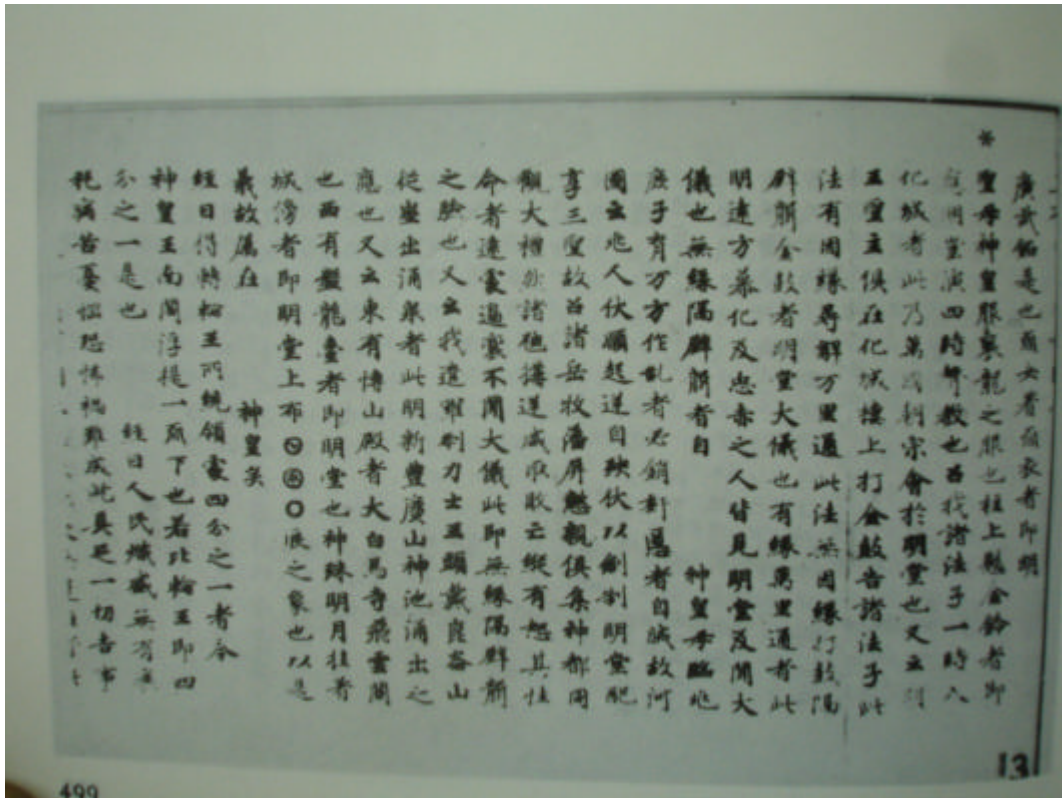 廣武銘是也南女著南衣者即明
*
聖母神皇服袞龍之服也柱上懸金鈴者即
明堂演四時聲教也召我諸法子一時入
化城者此乃萬國朝宗會於明堂也又云
五聖主俱在化城樓上打金鼓告諸法子此
法有因緣尋解万里通此法無因緣打鼓隔
壁聾金鼓者明堂大儀也有緣萬里通者此
明遠方慕化及忠赤之人皆見明堂及聞大
儀也無緣隔壁聾者自 神皇母臨兆
庶子育万方作乱者必銷 者自滅故河
圖云兆人伏 起逆自殃伏以創制明堂配
享三聖故召諸岳牧藩屏懿親俱集神都同
觀大禮然諸虺攜逆咸承敗亡縱有恕其性
命者遠竄邊裔不聞大儀此即無緣隔壁聾
之驗也又云我遣難刺刀士王頭戴崑崙山
從壺出涌泉者此明新豐慶山神池涌出之
應也又云東有博山殿者大白馬寺飛雲閣
也西有盤龍臺者即明堂也神珠明月挂著
城傍者即明堂上布 〇辰之象也以是
義故屬在 神皇矣
經曰得轉輪王所統領處四分之一者今
神皇王南閻浮提一天下也若比輪王即四
分之一是也 經曰人民熾盛無有衰
耗病苦憂惱恐怖禍難成此具足一切吉事
13
499